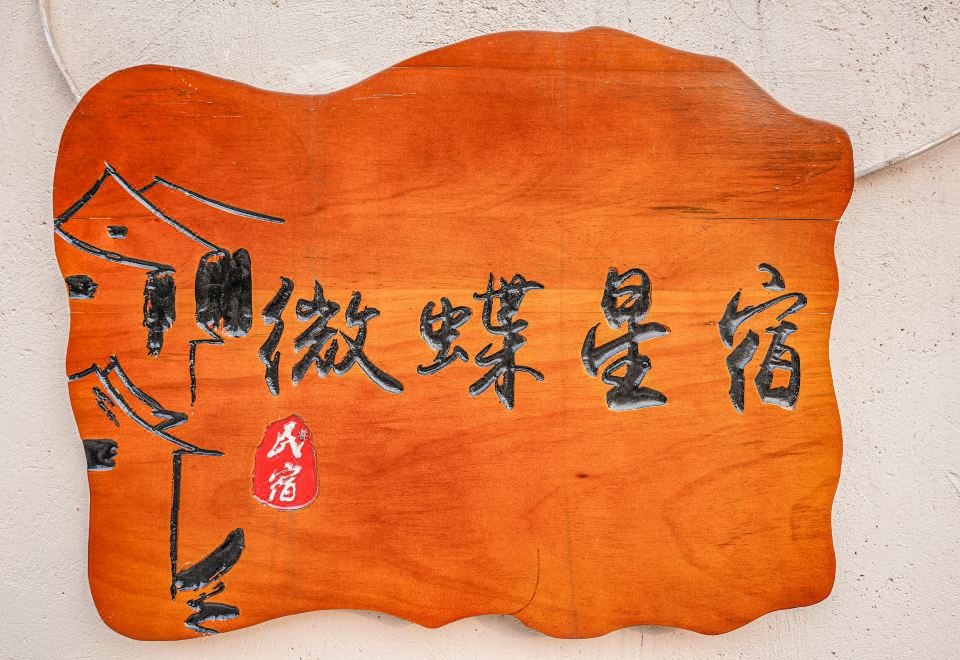 微蝶星宿
民宿